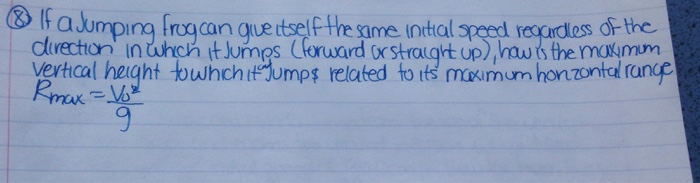 ⑧ If a Jumping frog can give itself the same initial speed regardless of the
direction in which it Jumps (forward or straight up), how is the maximum
vertical height to which it can Jump related to its maximum horizontal range
Rmax = V₀²/g